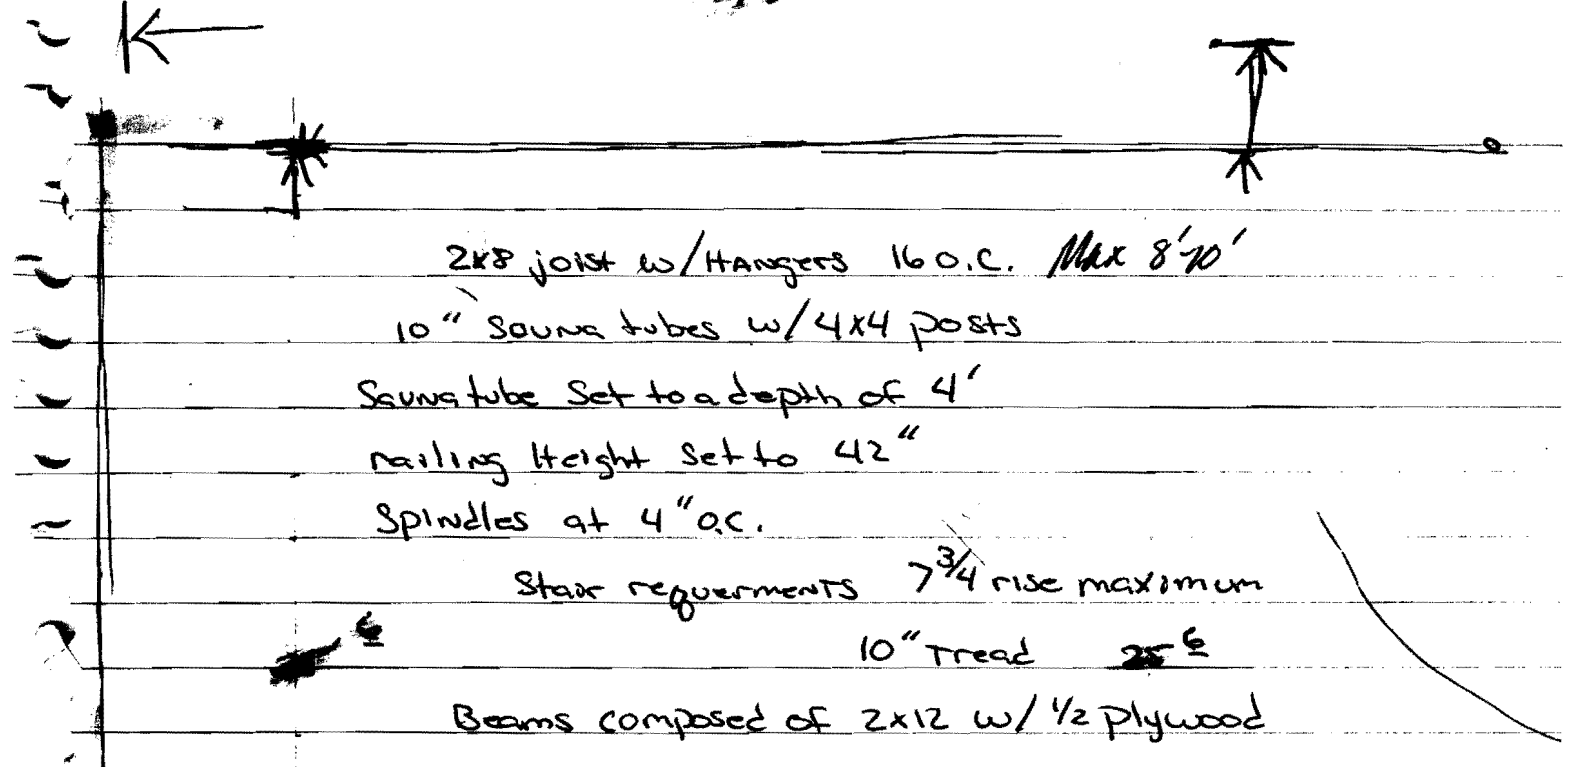 2x8 joist w/HANgers 16 O.C. Max 8'-10'
10" Sauna tubes w/4x4 posts
Sauna tube Set to a depth of 4'
railing Height Set to 42"
Spindles at 4" O.C.
Stair requerments 7 3/4 rise maximum
6
10" Tread 6
Beams composed of 2x12 w/ 1/2 plywood